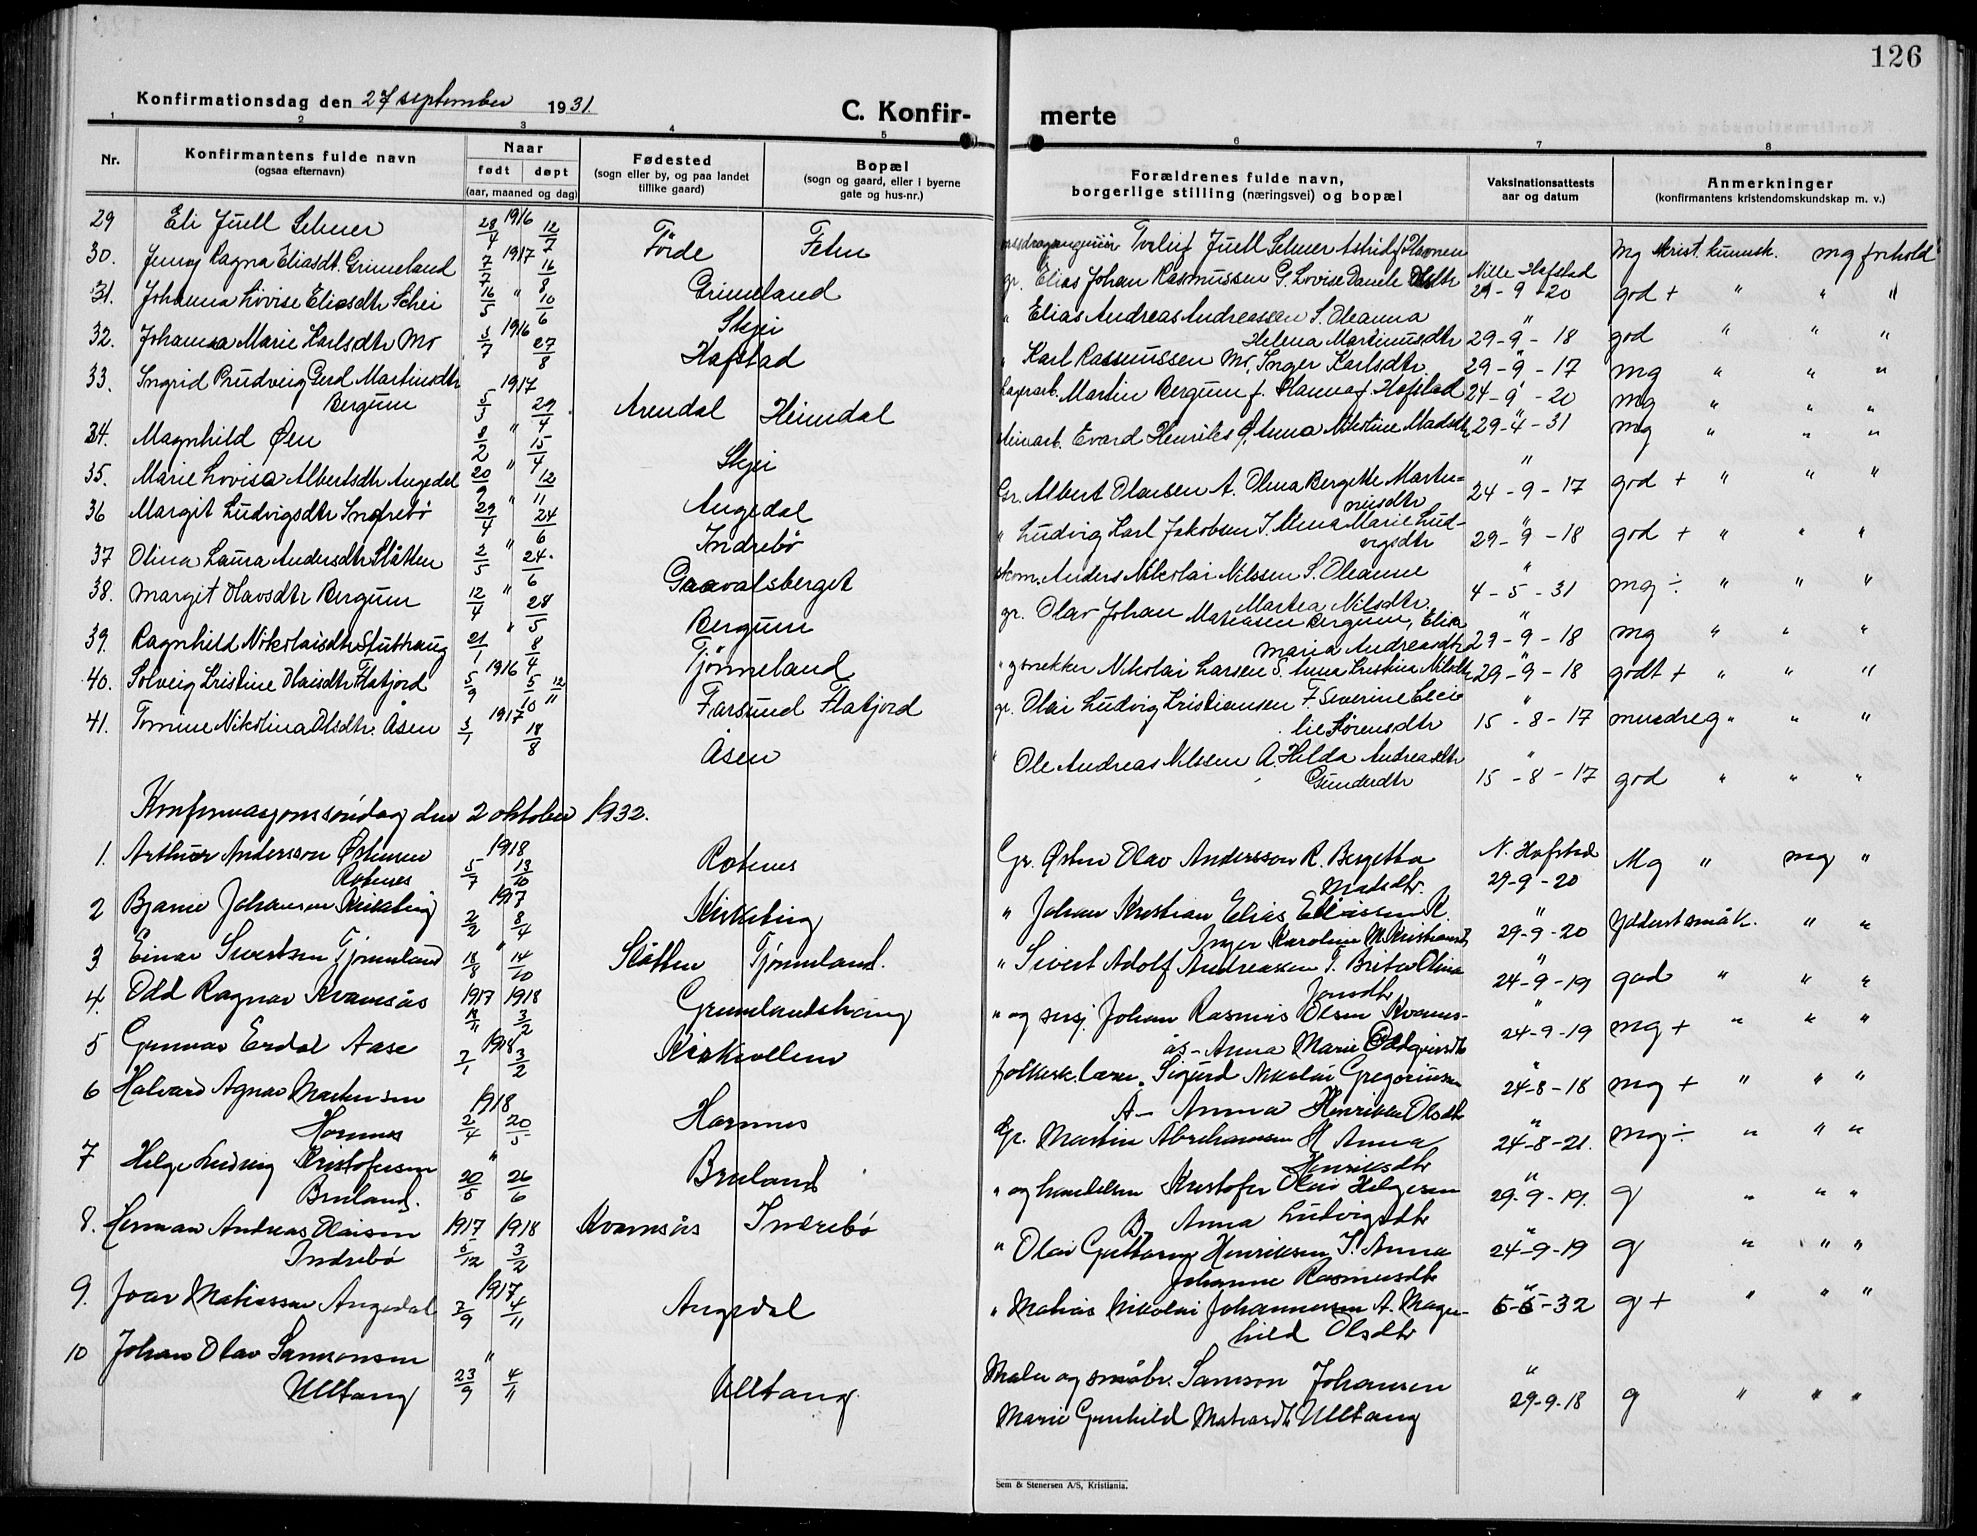 126
Konfirmationsdag den 27 september 1931.
C. Konfir-
merte
1 2 3 4 5 6 7 8
Nr.
Konfirmantens fulde navn
(ogsaa efternavn)
Naar
født døpt
(aar, maaned og dag)
Fødested
(sogn eller by, og paa landet
tillike gaard)
Bopæl
(sogn og gaard, eller i byerne
gate og hus-nr.)
Forældrenes fulde navn,
borgerlige stilling (næringsvei) og bopæl
Vaksinationsattests
aar og datum
Anmerkninger
(konfirmantens kristendomskundskap m. v.)
29 Eli Juell 28/4 1916 12/7 Förde Juell mg forhold
30. Jenny Ragna Eliasdt. Grimeland 7/7 1917 16/8 Grimeland gr. Elias Johan Rasmussen G. Lovise Nille Hafstad
29-9-20 god + " " "
31. Johanna Lovise Eliasdtr Schei 16/5 " 10/6 Skjei " Elias Andreas Andreassen S. Oleanna "
Helena Martinusdtr 29-9-18 god " " "
32. Johanna Marie Karlsdtr Mo 3/7 1916 27/8 Hafstad " Karl Rasmussen Mo, Inger Karlsdtr. 29-9-17 mg " " "
33. Ingrid Gerd Martinsdtr
Bergum 5/3 1917 29/4 Arendal Heimdal Lagerarb. Martin Bergum f. Hanna f. Hafstad 24-9-20 mg " " "
34. Magnhild Øen 8/2 " 15/4 Skjei Evard Henriks Ø. Anna Nikoline Madsdtr 29-4-31 mg " " "
35. Marie Lovisa Albertsdtr Angedal 20/9 " 12/11 Angedal Gr. Albert Olausen A. Olina Bergitte Marti-
nusdtr 24-9-17 god + " " "
36 Margit Ludvigsdtr Indrebö 29/4 " 24/6 Indrebö " Ludvig Karl Jakobsen I. Marie Lud-
vigsdtr 29-9-18 god + " " "
37 Olina Laura Andersdtr Slåtten 2/5 " 24/6 Gaavalsberget skom. Anders Nikolai Nilssen S. Oleanne
Martea Nilsdtr. 4-5-31 mg ÷ " " "
38. Margit Olavsdtr Bergum 12/4 " 28/5 Bergum gr. Olav Johan Matiasen Bergum, Elisa
Maria Andreasdtr 29-9-18 mg " " "
39. Ragnhild Nikolaisdtr Stubhaug 21/1 " 8/4 Tjönneland " g snekker Nikolai Larsen S. Anna Kristina Nilsdtr 29-9-18 godt + " " "
40. Solveig Kristine Olaisdtr Flatjord 5/9 1916 5/10 12/11 Farsund Flatjord gr. Olai Ludvig Kristiansen F. Severine
lie Sørensdtr 15-8-17 mindre g " " "
41. Tomine Nikolina Olsdtr. Åsen 3/1 1917 18/8 Åsen " Ole Andreas Nilssen A. Hilda
Gunderdtr 15-8-17 god " " "
Konfirmasjonssöndag den 2 oktober 1932.
1. Arthur Andersson Østensen
Rotenes 5/7 1918 13/10 Rotenes Gr. Østen Olav Andersson R. Bergetha
Matsdtr. N. Hafstad
29-9-20 Mg " mg "
2 Bjarne Johansen Kirkebing 2/2 1917 8/4 Kirkebing " Johan Kristian Elias Eliassen K.
Inger Karoline M. 29-9-20 " "
3 Einar Sivertsen Tjønneland 18/8 " 14/10 Slåtten Tjønneland. " Sivert Adolf Andreassen T. Brita Olina
Jonsdtr 24-9-19 god " " "
4. Odd Ragnar Kvamsås 19/11 1917 1918 3/2 Grimelandshaug " og snsj. Johan Rasmus Olsen Kvams-
ås - Anna Marie 24-9-19 mg + " " "
5 Gunnar Erdal Aase 2/1 1918 3/2 Kirkevollen folkesk. lærer. Sigurd Nikolai Gregoriussen
A- Anna Henrikka Olsdtr 24-8-18 mg + " " "
6 Halvard Agnar Martinsen
Hornnes 2/4 1918 20/5 Hornnes Gr. Martin Abrahamsen H Anna
Henriksdtr 24-8-21. mg ÷ " " "
7 Helge Ludvig Kristofersen
Bruland. 20/5 " 26/6 Bruland " og handelsm Kristofer Olai Helgesen
B. Anna Ludvigsdtr 29-9-19. g " " "
8. Herman Andreas Olaisen
Indrebö 5/12 1917 1918 3/2 Kvamsås Indrebö " Olai Guttorm Henriksen I. Anna
Johanne Rasmusdtr 24-9-19 g " " "
9. Joar Matiassen Angedal 7/9 1917 4/11 Angedal " Matias Nikolai Johannessen A. Magn-
hild Olsdtr 6-5-32 g + " " "
10 Johan Olav Samsonsen
Ulltang 23/9 " 4/11 Ulltang. Maler og småbr. Samson Johansen
Marie Gunhild Matiasdtr Ulltang 29-9-18 g " " "
Sem & Stenersen A/S, Kristiania.